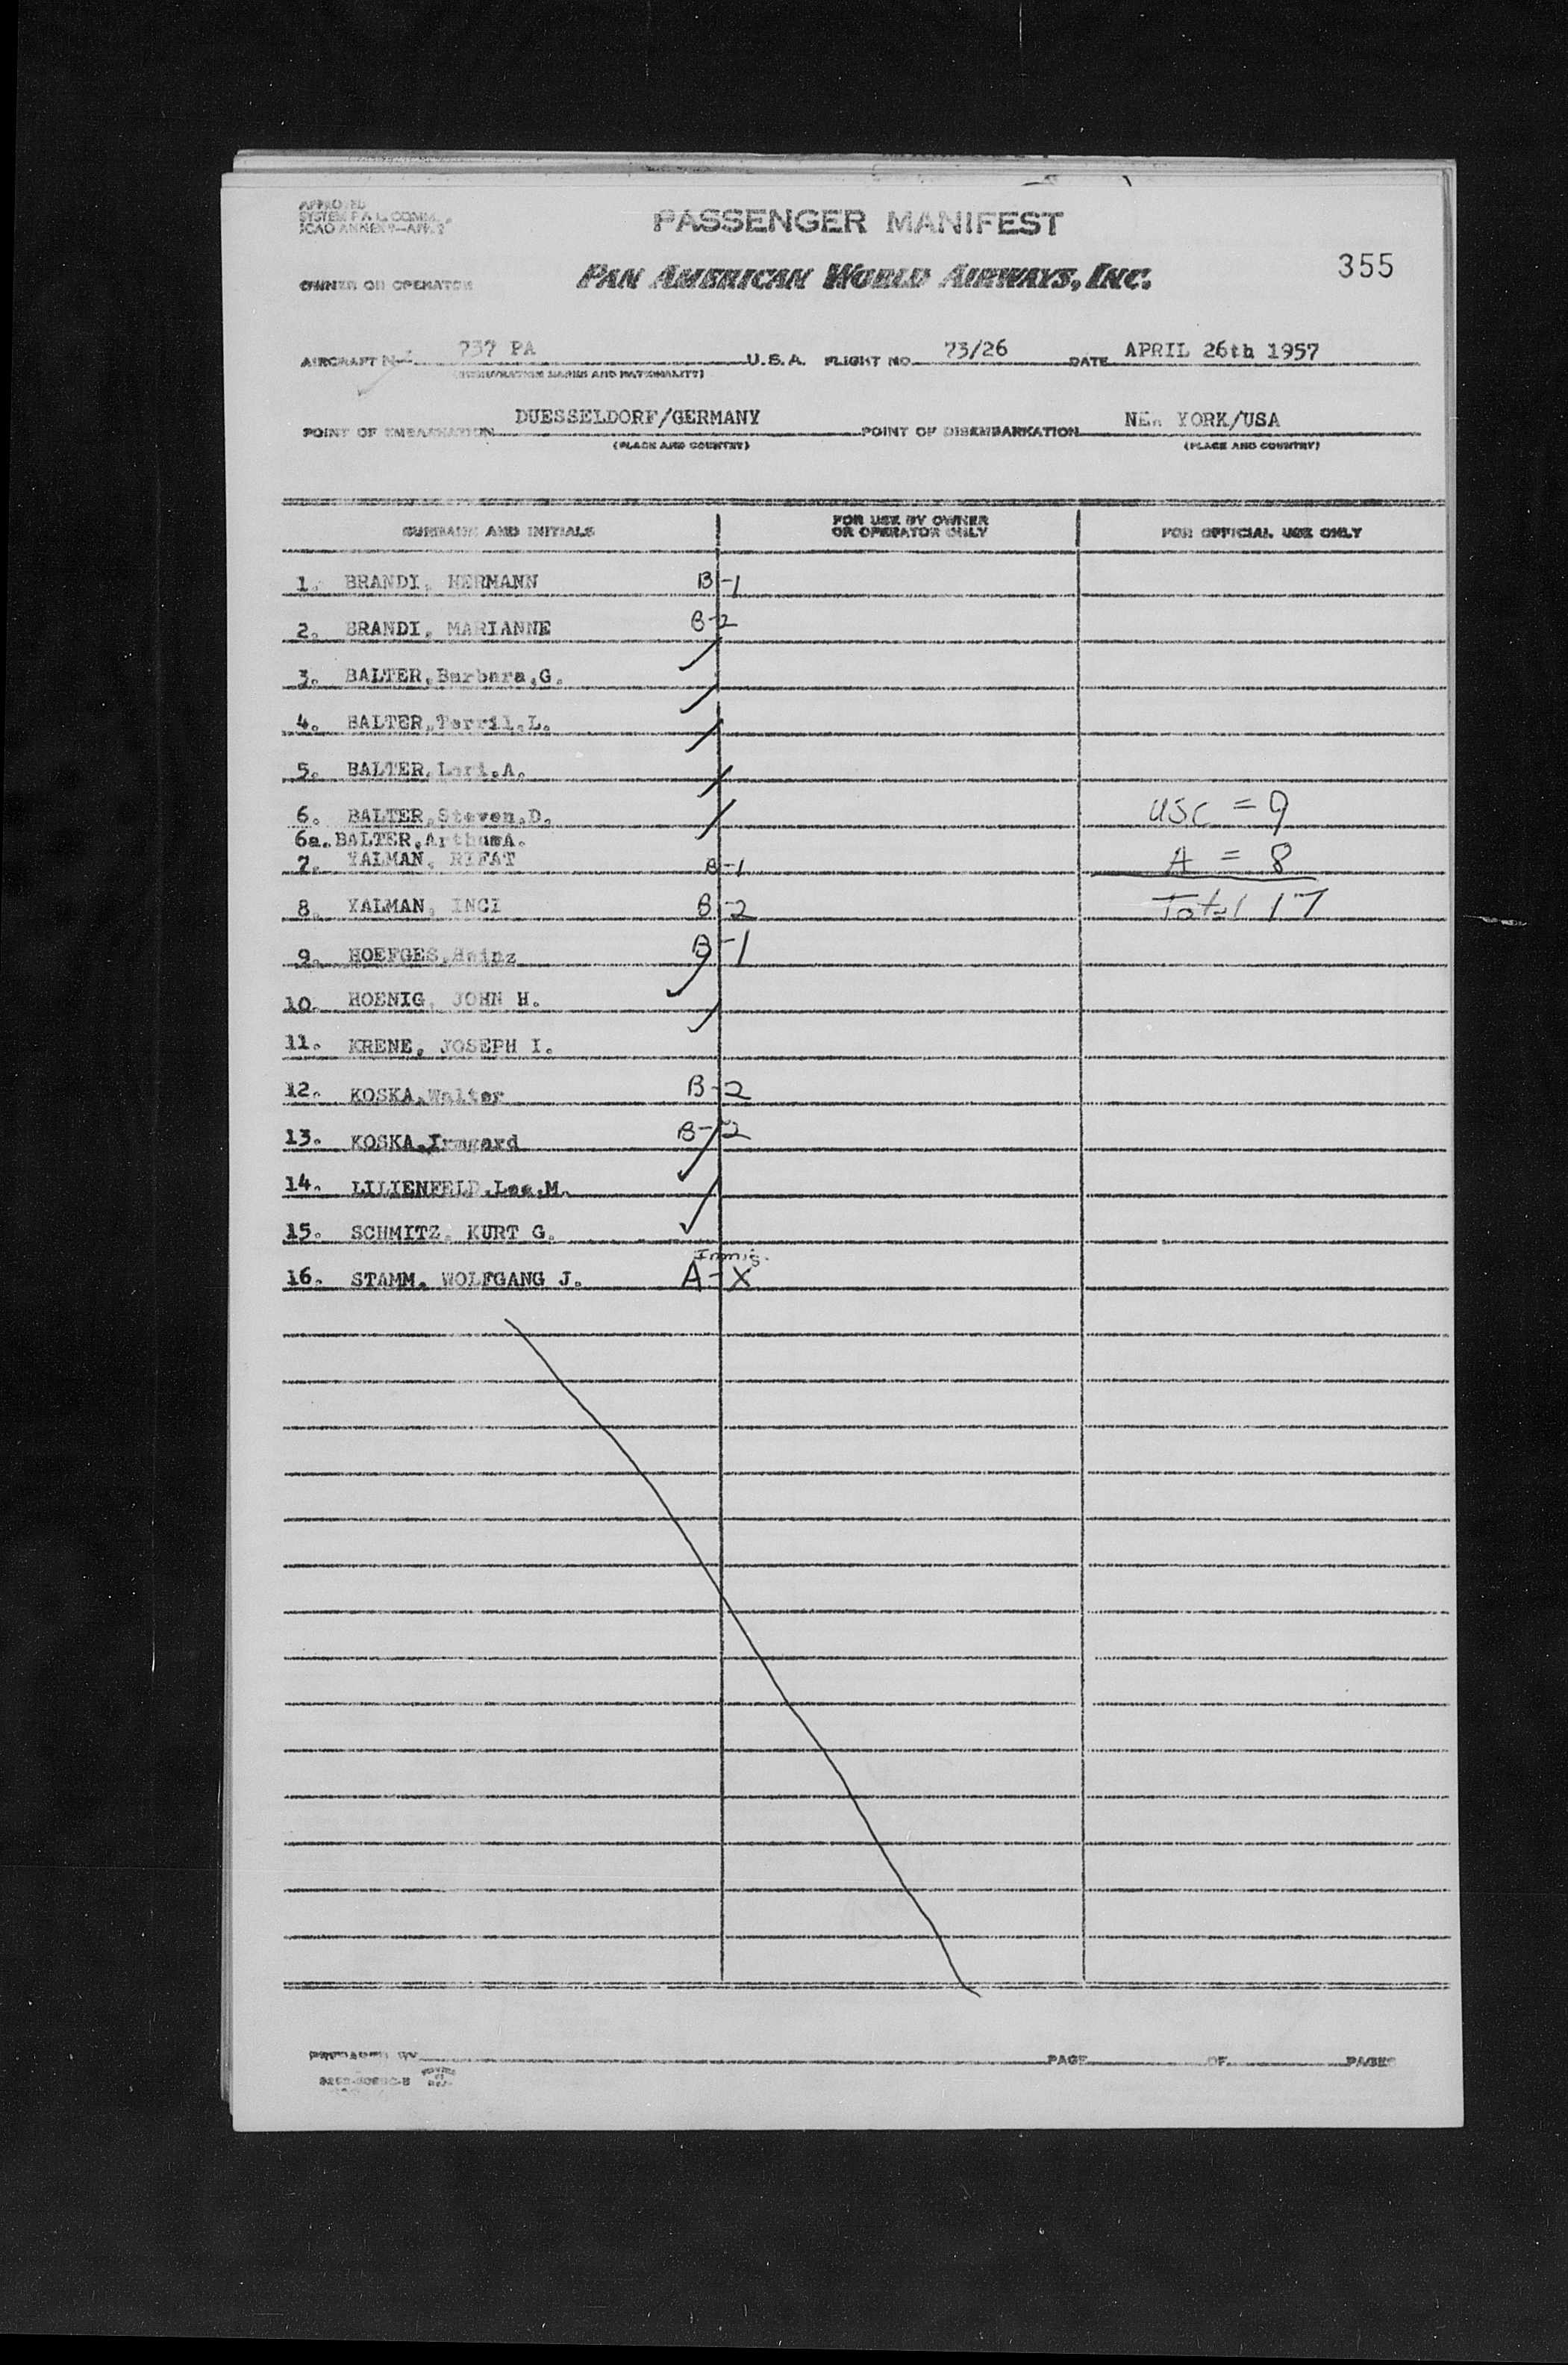 APPROVED
SYSTEM F A L COMM.
ICAO ANNEX 9—APP. 2
PASSENGER MANIFEST
355
OWNER OR OPERATOR PAN AMERICAN WORLD AIRWAYS, INC.
AIRCRAFT N- 737 PA U.S.A. FLIGHT NO. 73/26 DATE APRIL 26th 1957
(REGISTRATION MARKS AND NATIONALITY)
POINT OF EMBARKATION DUESSELDORF/GERMANY POINT OF DISEMBARKATION NEW YORK/USA
(PLACE AND COUNTRY) (PLACE AND COUNTRY)
SURNAME AND INITIALS FOR USE BY OWNER OR OPERATOR ONLY FOR OFFICIAL USE ONLY
1. BRANDI, HERMANN B-1
2. BRANDI, MARIANNE B-2
3. BALTER,Barbara,G.
4. BALTER,Terril,L.
5. BALTER,Lori,A.
6. BALTER,Steven,D. USC = 9
6a. BALTER,ArthurA.
7. YALMAN, RIFAT B-1 A = 8
8. YALMAN, INCI B-2 Total 17
9. HOEFGES,Heinz B-1
10. HOENIG, JOHN H.
11. KRENE, JOSEPH I.
12. KOSKA,Walter B-2
13. KOSKA,Irmgard B-2
14. LILIENFELD,Lee,M.
15. SCHMITZ, KURT G.
Immig.
16. STAMM, WOLFGANG J. A-X
PREPARED BY PAGE OF PAGES